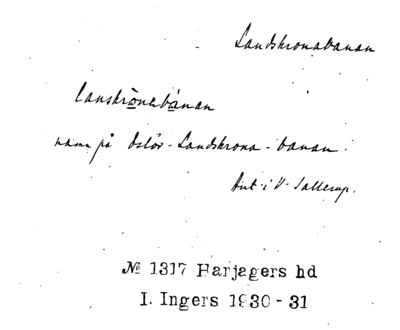 Landskronabanan
lanskrònabánan
namn på Eslöv-Landskrona-banan.
Ant. i V. Sallerup.
№ 1317 Harjagers hd
I. Ingers 1930-31